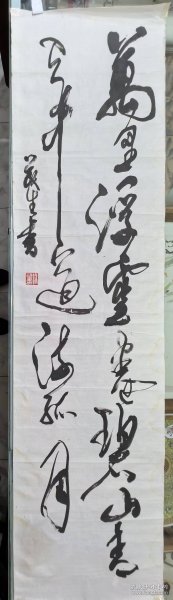 萬里浮雲卷碧山青
天中道流孤月
生書